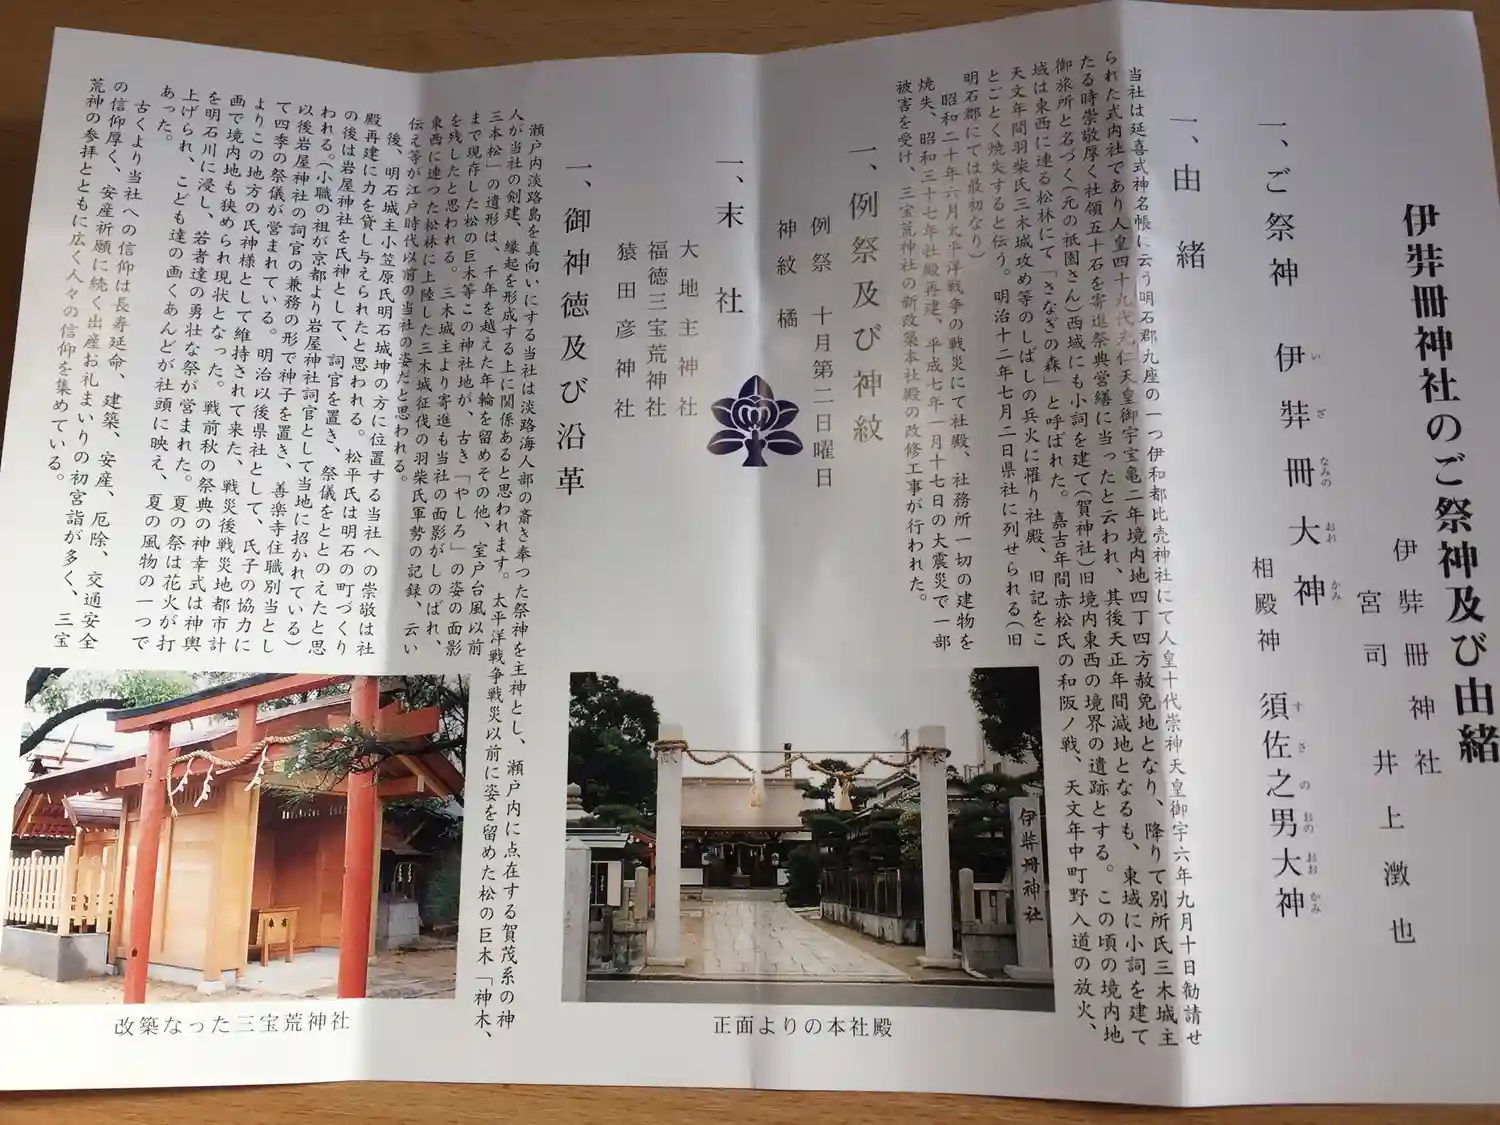 伊弉冊神社のご祭神及び由緒
伊弉冊神社
宮司 井上澂也
一、ご祭神 伊弉冊大神
い ざ なみの おお かみ
相殿神 須佐之男大神
す さ の おの おお かみ
一、由緒
当社は延喜式神名帳に云う明石郡九座の一つ伊和都比売神社にて人皇十代崇神天皇御宇六年九月十日勧請せ
られた式内社であり人皇四十九代光仁天皇御宇宝亀二年境内地四丁四方赦免地となり、降りて別所氏三木城主
たる時崇敬厚く社領五十石を寄進祭典営繕に当ったと云われ、其後天正年間減地となるも、東域に小詞を建て
御旅所と名づく(元の祇園さん)西域にも小詞を建て(賀神社)旧境内東西の境界の遺跡とする。この頃の境内地
域は東西に連る松林にて「さなぎの森」と呼ばれた。嘉吉年間赤松氏の和阪ノ戦、天文年中町野入道の放火、
天文年間羽柴氏三木城攻め等のしばしの兵火に罹り社殿、旧記をこ
とごとく焼失すると伝う。明治十二年七月二日県社に列せられる(旧
明石郡にては最初なり)
昭和二十年六月太平洋戦争の戦災にて社殿、社務所一切の建物を
焼失、昭和三十七年社殿再建、平成七年一月十七日の大震災で一部
被害を受け、三宝荒神社の新改築本社殿の改修工事が行われた。
一、例祭及び神紋
例祭 十月第二日曜日
神紋 橘
一、末社
大地主神社
福徳三宝荒神社
猿田彦神社
一、御神徳及び沿革
瀬戸内淡路島を真向いにする当社は淡路海人部の斎き奉った祭神を主神とし、瀬戸内に点在する賀茂系の神
人が当社の創建、縁起を形成する上に関係あると思われます。太平洋戦争戦災以前に姿を留めた松の巨木「神木、
三本松」の遺形は、千年を越えた年輪を留めその他、室戸台風以前
まで現存した松の巨木等この神社地が、古き「やしろ」の姿の面影
を残したと思われる。三木城主より寄進も当社の面影がしのばれ、
東西に連つた松林に上陸した三木城征伐の羽柴氏軍勢の記録、云い
伝え等が江戸時代以前の当社の姿だと思われる。
後、明石城主小笠原氏明石城坤の方に位置する当社への崇敬は社
殿再建に力を貸し与えられたと思われる。松平氏は明石の町づくり
の後は岩屋神社を氏神として、詞官を置き、祭儀をととのえたと思
われる。(小職の祖が京都より岩屋神社詞官として当地に招かれている)
以後岩屋神社の詞官の兼務の形で神子を置き、善楽寺住職別当とし
て四季の祭儀が営まれている。明治以後県社として、氏子の協力に
よりこの地方の氏神様として維持されて来た、戦災後戦災地都市計
画で境内地も狭められ現状となった。戦前秋の祭典の神幸式は神輿
を明石川に浸し、若者達の勇壮な祭が営まれた。夏の祭は花火が打
上げられ、こども達の画くあんどが社頭に映え、夏の風物の一つで
あった。
古くより当社への信仰は長寿延命、建築、安産、厄除、交通安全
の信仰厚く、安産祈願に続く出産お礼まいりの初宮詣が多く、三宝
荒神の参拝とともに広く人々の信仰を集めている。
伊弉冊神社
正面よりの本社殿
改築なった三宝荒神社